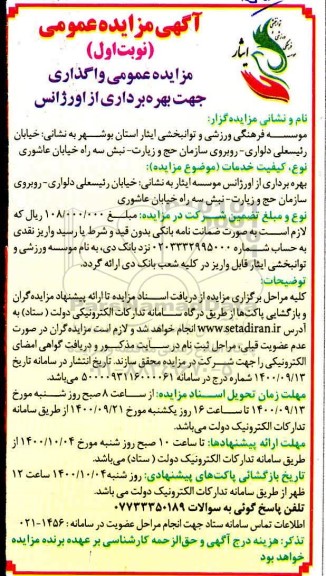 آگهی مزایده عمومی
(نوبت اول)
مزایده عمومی واگذاری
جهت بهره برداری از اورژانس
ایثار
نام و نشانی مزایده‌گزار:
موسسه فرهنگی ورزشی و توانبخشی ایثار استان بوشهر به نشانی: خیابان
رئیسعلی دلواری- روبروی سازمان حج و زیارت- نبش سه راه خیابان عاشوری
نوع، کیفیت خدمات (موضوع مزایده):
بهره برداری از اورژانس موسسه ایثار به نشانی: خیابان رئیسعلی دلواری- روبروی
سازمان حج و زیارت- نبش سه راه خیابان عاشوری
نوع و مبلغ تضمین شرکت در مزایده: مبلغ ۱۰۸/۰۰۰/۰۰۰ ریال که
لازم است به صورت ضمانت نامه بانکی بدون قید و شرط یا رسید واریز نقدی
به حساب شماره ۰۲۰۳۳۳۲۹۹۵۰۰۰ نزد بانک دی، به نام موسسه ورزشی و
توانبخشی ایثار قابل واریز در کلیه شعب بانک دی ارائه گردد.
توضیحات:
کلیه مراحل برگزاری مزایده از دریافت اسناد مزایده تا ارائه پیشنهاد مزایده‌گران
و بازگشایی پاکت‌ها از طریق درگاه سامانه تدارکات الکترونیکی دولت (ستاد) به
آدرس www.setadiran.ir انجام خواهد شد و لازم است مزایده گران در صورت
عدم عضویت قبلی، مراحل ثبت نام در سایت مذکور و دریافت گواهی امضای
الکترونیکی را جهت شرکت در مزایده محقق سازند. تاریخ انتشار در سامانه تاریخ
۱۴۰۰/۰۹/۱۳ شماره درج در سامانه ۵۰۰۰۹۳۱۱۶۰۰۰۰۶۱ می‌باشد.
مهلت زمان تحویل اسناد مزایده: از ساعت ۸ صبح روز شنبه مورخ
۱۴۰۰/۰۹/۱۳ تا ساعت ۱۶ روز یکشنبه مورخ ۱۴۰۰/۰۹/۲۱ از طریق سامانه
تدارکات الکترونیک دولت می‌باشد.
مهلت ارائه پیشنهادها: تا ساعت ۱۰ صبح روز شنبه مورخ ۱۴۰۰/۱۰/۰۴ از
طریق سامانه تدارکات الکترونیک دولت (ستاد) می‌باشد.
تاریخ بازگشائی پاکت‌های پیشنهادی: روز شنبه ۱۴۰۰/۱۰/۰۴ ساعت ۱۲
ظهر از طریق سامانه تدارکات الکترونیک دولت می باشد.
تلفن پاسخ گوئی به سوالات ۰۷۷۳۳۳۵۰۱۸۹
اطلاعات تماس سامانه ستاد جهت انجام مراحل عضویت در سامانه: ۱۴۵۶-۰۲۱
تذکر: هزینه درج آگهی و حق‌الزحمه کارشناسی بر عهده برنده مزایده
خواهد بود